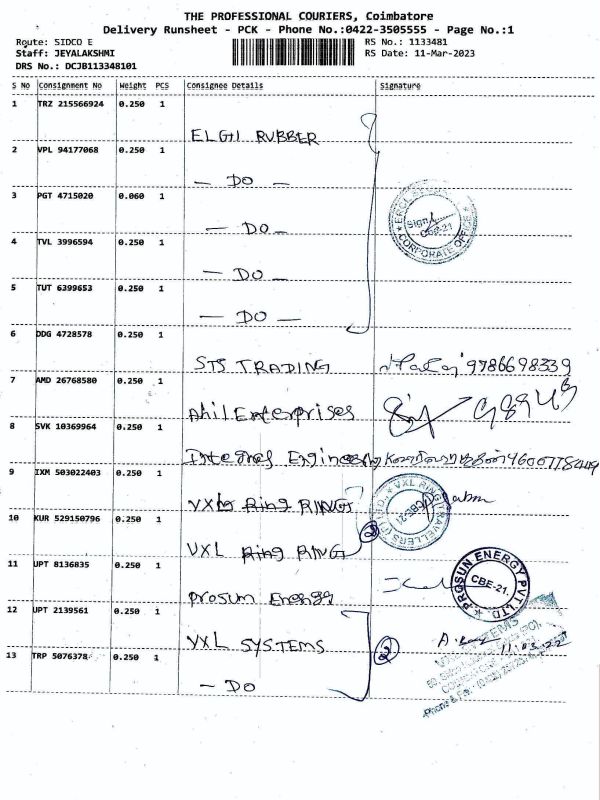 THE PROFESSIONAL COURIERS, Coimbatore
Delivery Runsheet - PCK - Phone No.:0422-3505555 - Page No.:1
Route: SIDCO E
RS No.: 1133481
Staff: JEYALAKSHMI
RS Date: 11-Mar-2023
DRS No.: DCJB113348101
S No Consignment No Weight PCS Consignee Details Signature
1 TRZ 215566924 0.250 1
ELGI RUBBER
2 VPL 94177068 0.250 1
— DO —
3 PGT 4715020 0.060 1
— DO —
CORPORATE OFFICE
CBE-21
4 TVL 3996594 0.250 1
— DO —
5 TUT 6399653 0.250 1
— DO —
6 DDG 4728578 0.250 1
STS TRADING 9786698339
7 AMD 26768580 0.250 1
Ahil Enterprises
8 SVK 10369964 0.250 1
Integral Engineering
9 IXM 503022403 0.250 1
VXL Ring RING
VXL RING TRAVELLERS
CBE-21
10 KUR 529150796 0.250 1
VXL Ring RING
2
11 UPT 8136835 0.250 1
Prosun Energy
PROSUN ENERGY PVT LTD.
CBE-21.
12 UPT 2139561 0.250 1
VXL SYSTEMS
2
13 TRP 5076378 0.250 1
— DO